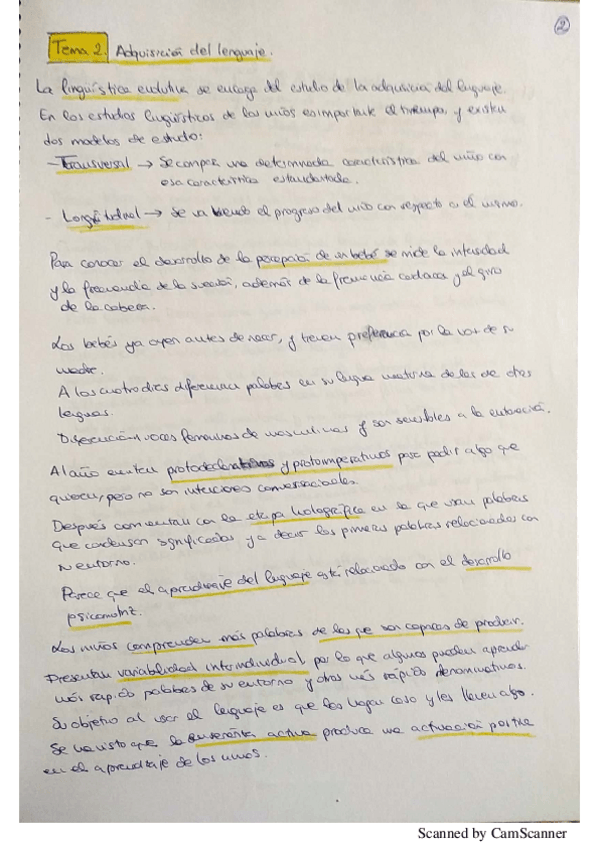 2
Tema 2. Adquisición del lenguaje.
La lingüística evolutiva se encarga del estudio de la adquisición del lenguaje.
En los estudios lingüísticos de los niños es importante el tiempo, y existen
dos modelos de estudio:
- Transversal → Se compara una determinada característica del niño con
esa característica estandarizada.
- Longitudinal → Se va viendo el progreso del niño con respecto a él mismo.
Para conocer el desarrollo de la percepción de un bebé se mide la intensidad
y la frecuencia de la succión, además de la frecuencia cardiaca y el giro
de la cabeza.
Los bebés ya oyen antes de nacer, y tienen preferencia por la voz de su
madre.
A los cuatro días diferencian palabras en su lengua materna de las de otras
lenguas.
Discriminan voces femeninas de masculinas y son sensibles a la entonación.
Al año emiten protodeclarativos y protoimperativos para pedir algo que
quieren, pero no son intenciones conversacionales.
Después comienzan con la etapa holográfica en la que usan palabras
que condensan significados, es decir las primeras palabras relacionadas con
su entorno.
Parece que el aprendizaje del lenguaje está relacionado con el desarrollo
psicomotriz.
Los niños comprenden más palabras de las que son capaces de producir.
Presentan variabilidad interindividual, por lo que algunos pueden aprender
más rápido palabras de su entorno y otros más rápido denominativos.
Su objetivo al usar el lenguaje es que les hagan caso y les lleven algo.
Se ha visto que la enseñanza activa produce una actuación positiva
en el aprendizaje de los niños.
Scanned by CamScanner